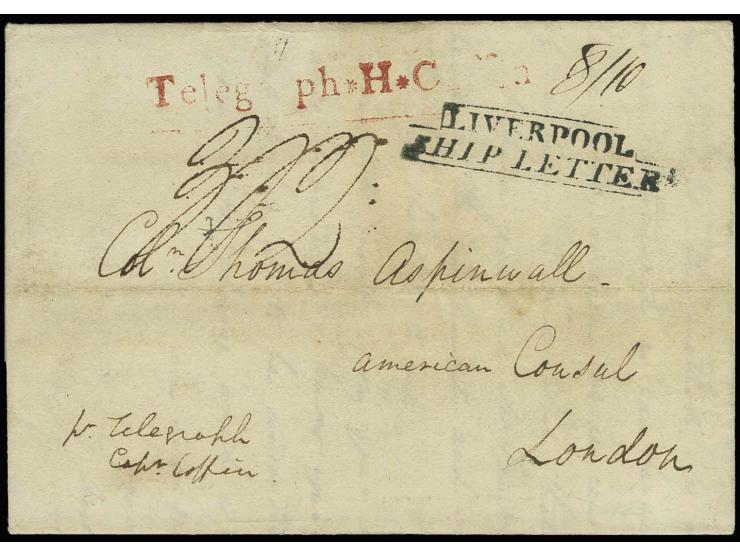 Teleg ph*H*C n
8/10
LIVERPOOL
SHIP LETTER
Coln. Thomas Aspinwall
American Consul
London
pr. Telegraph
Capn. Coffin.